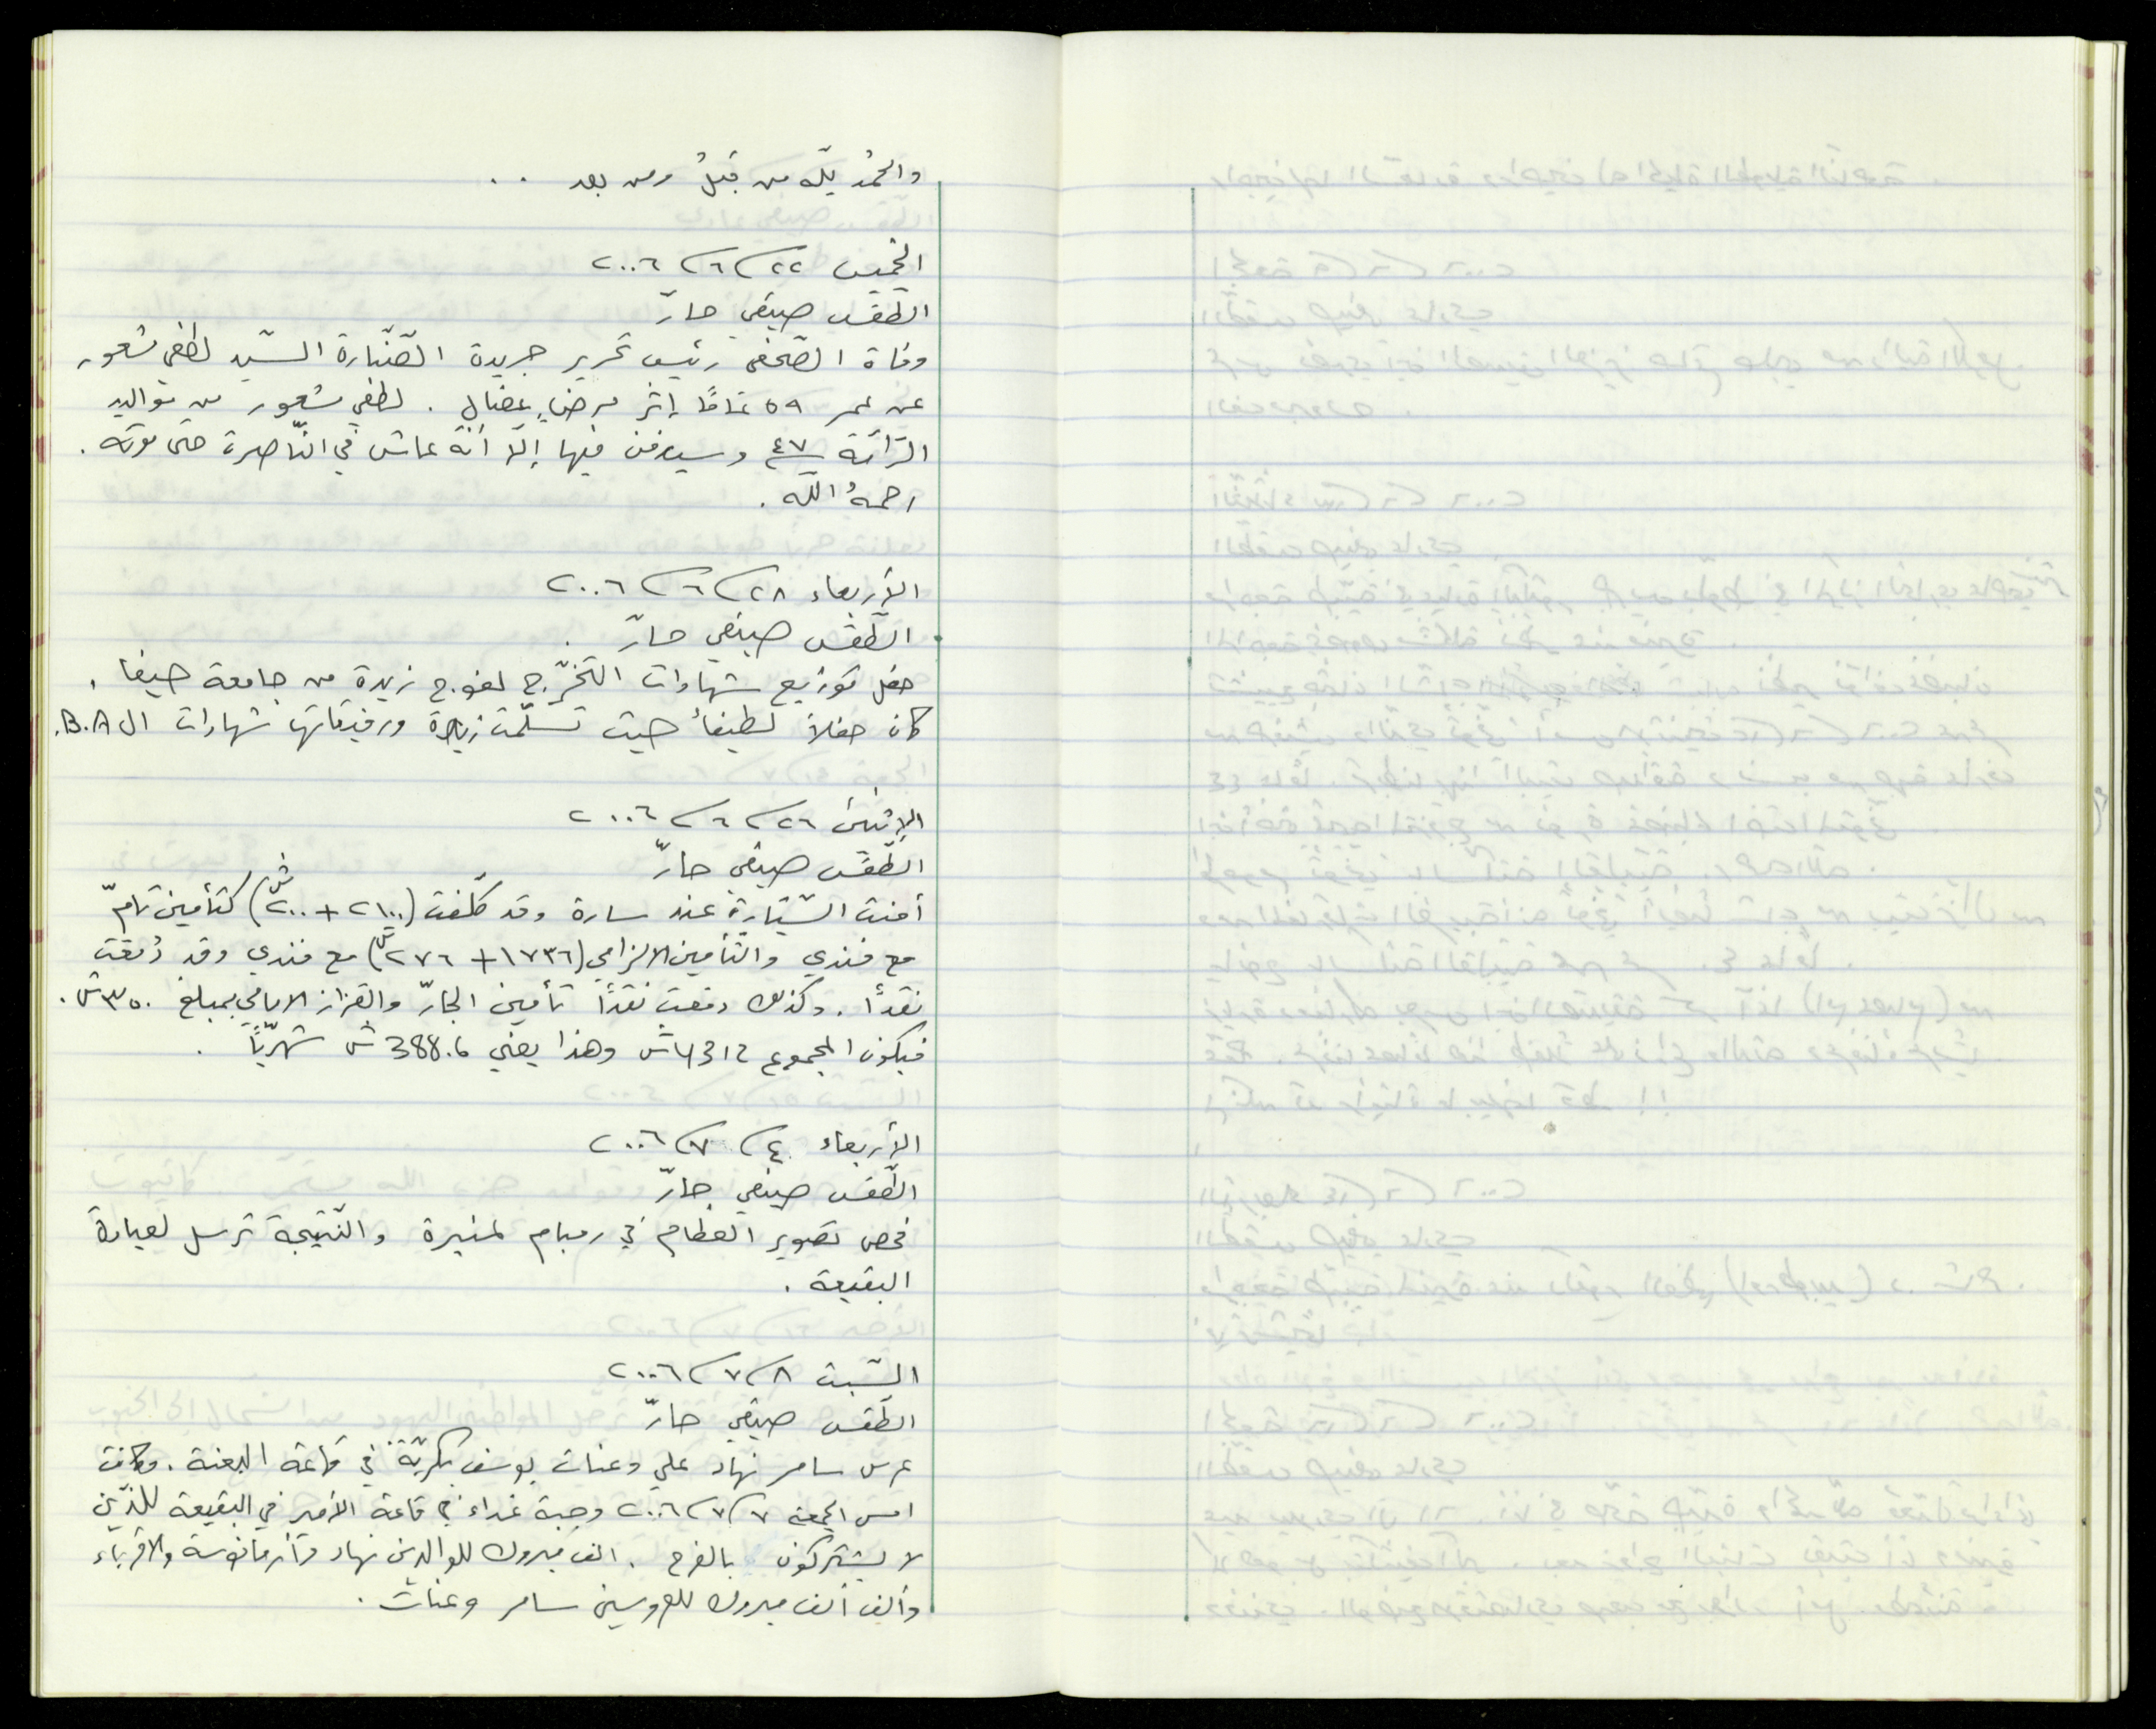 والحمدُ لله من قبلُ ومن بعد ..
الخميس ٢٢/٦/٢٠٠٦
الطّقس صيفي حارّ
وفاة الصّحفي رئيس تحرير جريدة الصّنّارة السّيد لطفي مشعور
عن عمر ٥٩ عامًا إثر مرضٍ عضال . لطفي مشعور من مواليد
الرّامة ٤٧ وسيدفن فيها إلّا أنّه عاش في النّاصرة حتى موته .
رحمهُ الله .
الأربعاء ٢٨/٦/٢٠٠٦
الطّقس صيفي حارّ .
حفل توزيع شهادات التّخرّج لفوج زيدة من جامعة حيفا .
كان حفلاً لطيفاً حيث تسلّمت ورفيقاتها شهادات ال B.A.
الإثنين ٢٦/٦/٢٠٠٦
الطّقس صيفي حارّ
أمنت السّيّارة عند سارة وقد كلّفت (٢١٠٠ + ٢٠٠ش) كتأمين تامّ
مع فندي والتأمين الالزامي (١٧٣٦ + ٢٧٦ش) مع فندي وقد دُفعت
نقدًا . وكذلك دفعت نقدًا تأمين الجارّ والقزاز الامامي بمبلغ ٣٥٠ش .
فيكون المجموع 4312ش وهذا يعني 388.6 ش شهريًّا .
الأربعاء ٤/٧/٢٠٠٦
الطّقس صيفي حارّ
فحص تصوير العظام في رمبام لمنيرة والنّتيجة ترسل لعيادة
البقيعة .
السّبت ٨/٧/٢٠٠٦
الطّقس صيفي حارّ
عرس سامر نهاد علي وعنات يوسف بكريّة في قاعة البعنة . وكانت
امس الجمعة ٧/٧/٢٠٠٦ وجبة غداء في قاعة الأمير في البقيعة للذين
لا يشتركون بالفرح . الف مبروك للوالدين نهاد والأقرباء
وألف ألف مبروك للعروسين سامر وعنات .